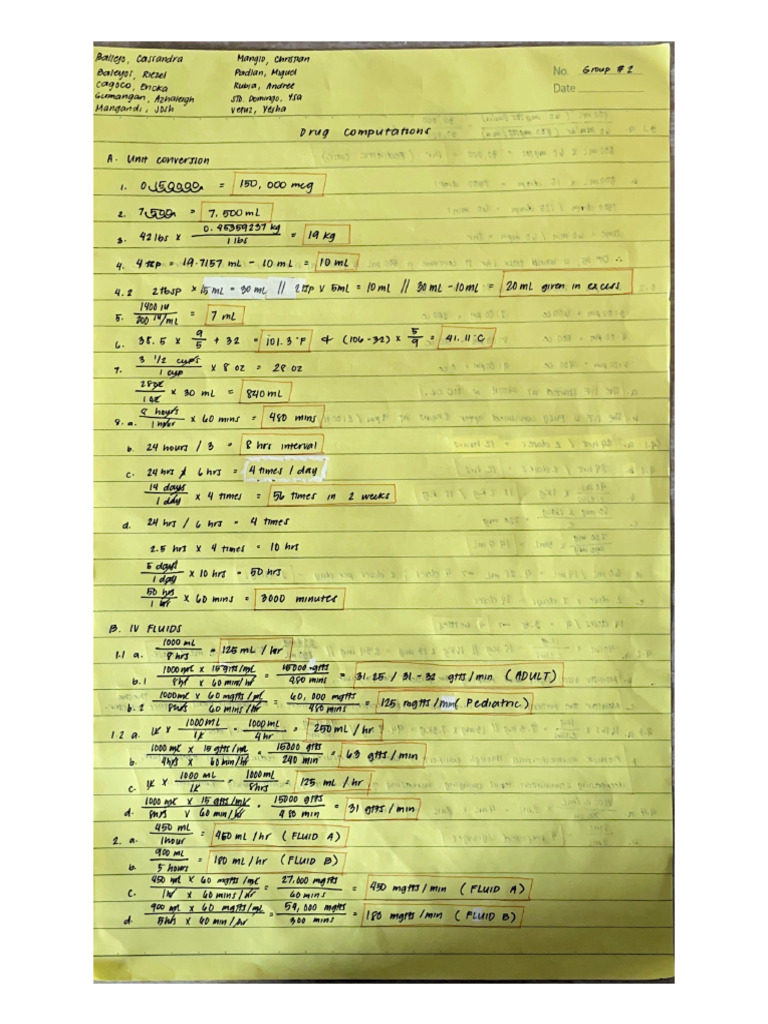 Ballejo, Cassandra Mangio, Christian
Baleyos, Riezel Padlan, Miguel No. Group # 2
Cagoco, Ericka Rubia, Andree Date
Gumangan, Azhaleigh Sto. Domingo, Ysa
Mangandi, Josh Veruz, Yesha
Drug Computations
A. Unit conversion
1. 0.150000 = 150,000 mcg
2. 7.500 = 7,500 mL
3. 42 lbs x 0.45359237 kg / 1 lbs = 19 kg
4. 4 tsp = 19.7157 mL - 10 mL = 10 mL
4.2 2 tbsp x 15 mL = 30 mL // 2 tsp x 5mL = 10 mL // 30 mL - 10 mL = 20 mL given in excess
5. 1400 iu / 200 iu/mL = 7 mL
6. 38.5 x 9/5 + 32 = 101.3 °F & (106-32) x 5/9 = 41.11 °C
7. 3 1/2 cups / 1 cup x 8 oz = 28 oz
28 oz / 1 oz x 30 mL = 840 mL
8. a. 8 hours / 1 hour x 60 mins = 480 mins
b. 24 hours / 3 = 8 hrs interval
c. 24 hrs / 6 hrs = 4 times / day
14 days / 1 day x 4 times = 56 times in 2 weeks
d. 24 hrs / 6 hrs = 4 times
2.5 hrs x 4 times = 10 hrs
5 days / 1 day x 10 hrs = 50 hrs
50 hrs / 1 hr x 60 mins = 3000 minutes
B. IV FLUIDS
1.1 a. 1000 mL / 8 hrs = 125 mL / hr
b.1 1000 mL x 15 gtts/mL / 8hr x 60 min/hr = 15000 gtts / 480 mins = 31.25 / 31-32 gtts/min (ADULT)
b.2 1000 mL x 60 mgtts/mL / 8hrs x 60 min/hr = 60,000 mgtts / 480 mins = 125 mgtts/min (Pediatric)
1.2 a. 1L x 1000 mL / 1L = 1000 mL / 4 hr = 250 mL / hr
b. 1000 mL x 15 gtts/mL / 4hrs x 60 min/hr = 15000 gtts / 240 min = 63 gtts/min
c. 1L x 1000 mL / 1L = 1000 mL / 8hrs = 125 mL / hr
d. 1000 mL x 15 gtts/mL / 8hrs x 60 min/hr = 15000 gtts / 480 min = 31 gtts/min
2. a. 450 mL / 1 hour = 450 mL/hr (FLUID A)
b. 900 mL / 5 hours = 180 mL / hr (FLUID B)
c. 450 mL x 60 mgtts/mL / 1 hr x 60 mins/hr = 27,000 mgtts / 60 mins = 450 mgtts/min (FLUID A)
d. 900 mL x 60 mgtts/mL / 5hrs x 60 min/hr = 54,000 mgtts / 300 mins = 180 mgtts/min (FLUID B)